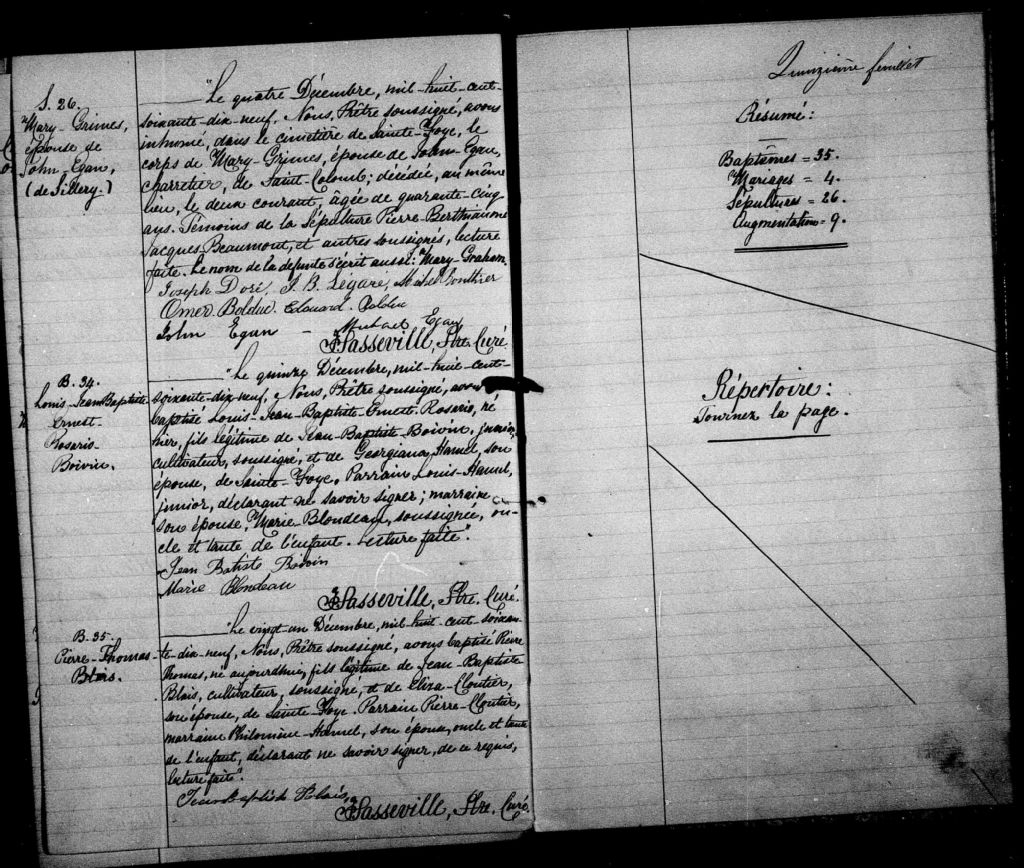 S. 26.
Mary-Grimes,
épouse de
John Egan,
(de Sillery.)
"Le quatre Décembre, mil-huit-cent-
soixante-dix-neuf, Nous, Prêtre soussigné, avons
inhumé, dans le cimetière de Sainte-Foye, le
corps de Mary-Grimes, épouse de John-Egan,
charretier, de Saint-Colomb; décédée, au même
lieu, le deux courant, âgée de quarante-cinq
ans. Témoins de la Sépulture Pierre-Berthiaume
Jacques Beaumont, et autres soussignés, lecture
faite. Le nom de la defunte s'écrit aussi: "Mary-Graham.
Joseph Doré, J. B. Légaré, Michel Gonthier
Omer Bolduc. Edouard Bolduc
John Egan - Michael Egan
JSasseville, Ptre. Curé
B. 34.
Louis-Jean Baptiste
Ernest-
Rosario-
Boivin.
"Le quinze Décembre, mil-huit-cent-
soixante-dix-neuf, Nous, Prêtre soussigné, avons
baptisé Louis-Jean-Baptiste-Ernest-Rosario, né
hier, fils légitime de Jean-Baptiste-Boivin, junior,
cultivateur, soussigné, et de Georgiana, Hamel, son
épouse, de Sainte-Foye. Parrain Louis-Hamel,
junior, déclarant ne savoir signer; marraine
son épouse, Marie-Blondeau, soussignée, on-
cle et tante de l'enfant. Lecture faite."
Jean Batiste Boivin
Marie Blondeau
JSasseville, Ptre. Curé.
B. 35.
Pierre-Thomas-
Blais.
"Le vingt-un Décembre, mil-huit-cent-soixan-
te-dix-neuf, Nous, Prêtre soussigné, avons baptisé Pierre
Thomas, né aujourdhui, fils légitime de Jean-Baptiste
Blais, cultivateur, soussigné, et de Eliza-Cloutier,
son épouse, de Sainte-Foye. Parrain Pierre-Cloutier,
marraine Philomène-Hamel, son épouse, oncle et tante
de l'enfant, déclarant ne savoir signer, de ce requis,
lecture faite".
Jean Baptiste Blais
JSasseville, Ptre. Curé.
Quinzième feuillet
Résumé:
Baptêmes = 35.
Mariages = 4.
Sépultures = 26.
Augmentation = 9.
Répertoire:
Tournez la page.